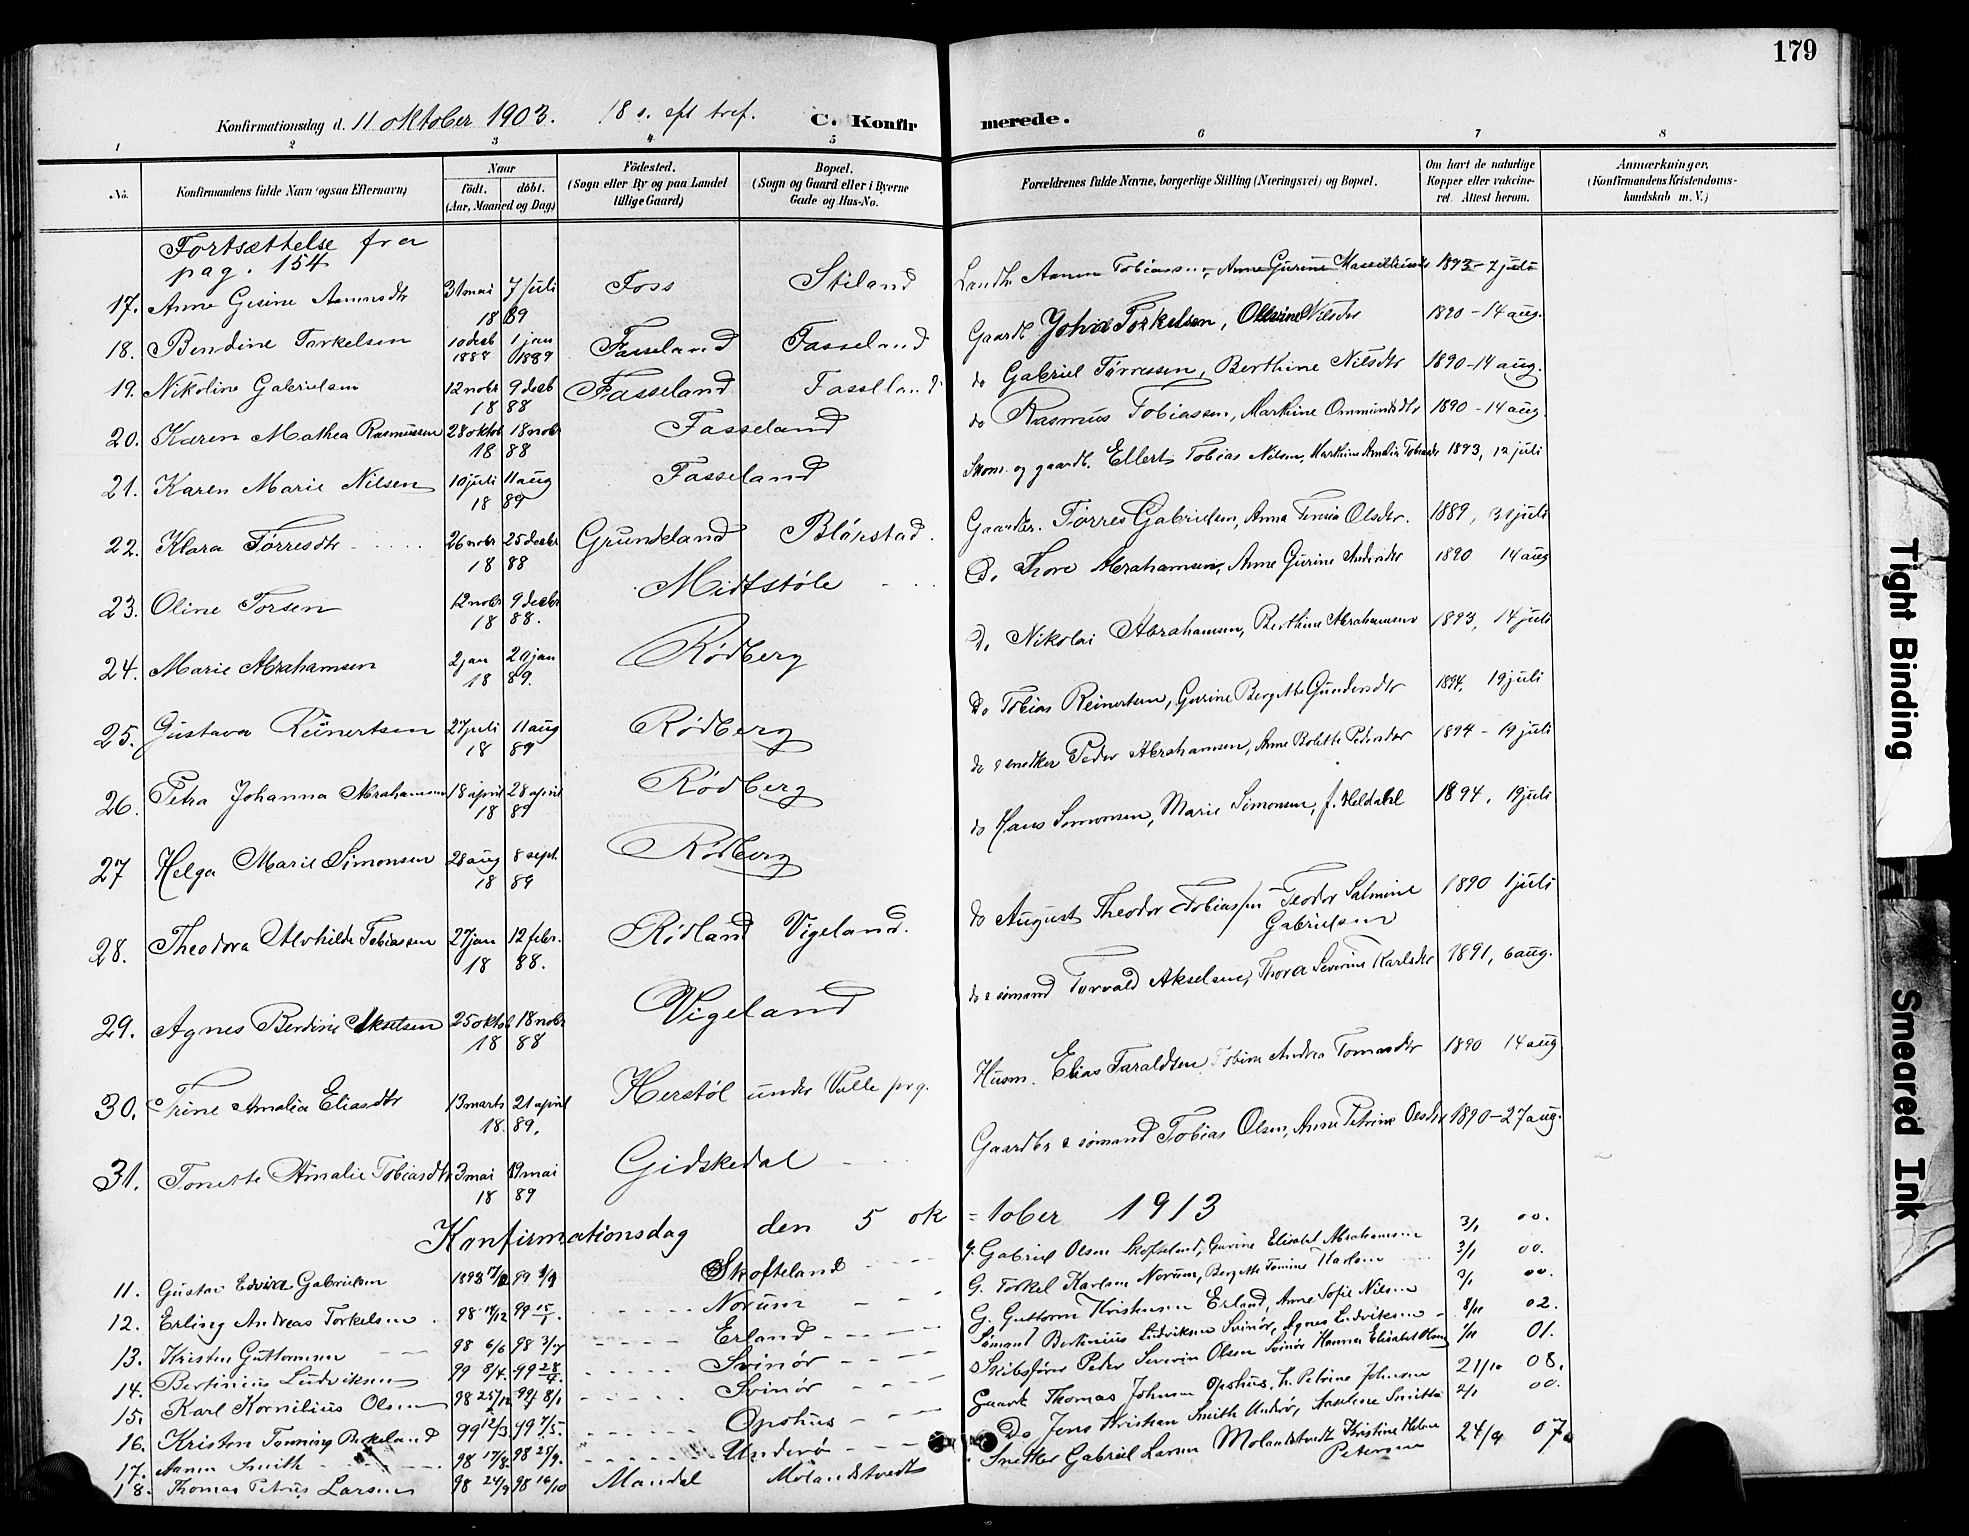 179
Konfirmationsdag d. 11 oktober 1903. 18 s. eft tref. C. Konfirmerede.
1 2 3 4 5 6 7 8
No. Konfirmandens fulde Navn (ogsaa Efternavn) Naar födt. döbt. (Aar, Maaned og Dag) Födested. (Sogn eller By og paa Landet tillige Gaard) Bopæl. (Sogn og Gaard eller i Byerne Gade og Hus-No. Forældrenes fulde Navne, borgerlige Stilling (Næringsvei) og Bopæl. Om havt de naturlige Kopper eller vakcineret. Attest herom. Anmærkninger. (Konfirmandens Kristendomskundskab m. V.)
Fortsættelse fra
pag. 154
17. Anne Gesine Aanensdtr 31 mai 7 juli 1889 Foss Stiland Landh. Aanen Tobiassen, Anne Gurine 1893 - 7 juli
18. Bendine Torkelsen 10 desb 1888 1 jan 1889 Fasseland Fasseland Gaardb. Johan Torkelsen, Nilsdtr 1890 - 14 aug.
19. Nikoline Gabrielsen 12 nobr 9 desb 1888 Fasseland Fasseland do Gabriel Tørressen, Berthine Nilsdtr 1890 - 14 aug.
20. Karen Mathea Rasmussen 28 oktob 18 nobr 1888 Fasseland do Rasmus Tobiassen, Marthine Ommundsdtr 1890 - 14 aug.
21. Karen Marie Nilsen 10 juli 11 aug 1889 Fasseland Skom. og gaardb. Ellert Tobias Nilsen, Marthine Amalia Tobiasdr 1893, 12 juli
22. Klara Tørresdtr 26 nobr 25 decbr 1888 Grundeland Blørstad. Gaardbr. Tørres Gabrielsen, Anna Olsdtr. 1889, 31 juli
23. Oline Torsen 12 nobr 9 decbr 1888. Midtstøle D. Thore Abrahamsen, Anne Gurine 1890 14 aug
24. Marie Abrahamsen 2 jan 20 jan 1889. Rødberg D. Nikolai Abrahamsen, Berthine Abrahamsen 1893, 14 juli
25. Gustava Reinertsen 27 juli 11 aug 1889 Rødberg Do Tobias Reinertsen, Gurine Bergitte Gundersdtr 1894, 19 juli
26. Petra Johanna Abrahamsen 18 april 28 april 1889 Rødberg do & snedker Peder Abrahamsen, Anne Bolette Pedersdtr 1894 - 19 juli
27 Helga Marie Simonsen 28 aug 8 sept. 1889 Rødberg do Hans Simonsen, Marie Simonsen, f. Heldahl 1894, 19 juli
28. Theodora Alvhilde Tobiassen 27 jan 12 febr. 1888. Rødland Vigeland. do August Theodor Tobiassen Teodor Salmine Gabrielsen 1890 1 juli
29. Agnes Berdine Akselsen 25 oktob 18 nobr 1888 Vigeland do & sømand Torvald Akselsen, Thora Severine Karlsdtr 1891, 6 aug.
30. Trine Amalia Eliasdtr 13 marts 21 april 1889. Herstøl under Valle prg. Husm. Elias Taraldsen Tobine Andrea Tomasdtr 1890 14 aug.
31. Tonette Amalie Tobiasdtr 3 mai 19 mai 1889 Gidskedal Gaardbr & sømand Tobias Olsen, Anne Petrine Olsdtr 1890 - 27 aug.
Konfirmationsdag den 5 ok=tober 1913
11. Gustav Edvin Gabrielsen 1898 17/12 99 1/1 Skofteland G. Gabriel Olsen Skofteland, Gurine Elisabet Abrahamsen 3/1 00.
12. Erling Andreas Torkelsen. 98 14/12 99 15/1 Norum G. Torkel Karlsen Norum, Bergitte Tomine Karlsen 3/1 00.
13. Kristen Guttormsen 98 6/6 98 3/7 Erland G. Guttorm Kristensen Erland, Anne Sofie Nilsen 3/1 00.
14. Bertinius Ludviksen 99 8/4 99 28/4. Svinør Sömand Bertinius Ludviksen Svinør, Agnes Ludviksen 8/11 02.
15. Karl Kornilius Olsen 98 25/12 99 8/1 Svinør Skibsfører Peder Severin Olsen Svinør Hanna Elisabet Olsen 1/11 01.
16. Kristen Tønning Birkeland 99 12/3 99 7/5. Opshus Gaardb. Thomas Johnsen Opshus, h. Petrine Johnsen 21/10 08.
17. Aanen Smith 98 17/8 98 25/9. Underø Do Jens Kristian Smith Underø, Aaselene Smith 2/1 00.
18. Thomas Petrus Larsen 98 24/9 98 16/10 Mandal Molandstvedt Snekker Gabriel Larsen Molandstvedt Kristine Helene Petersen 24/9 07.
Tight Binding
Smeared Ink